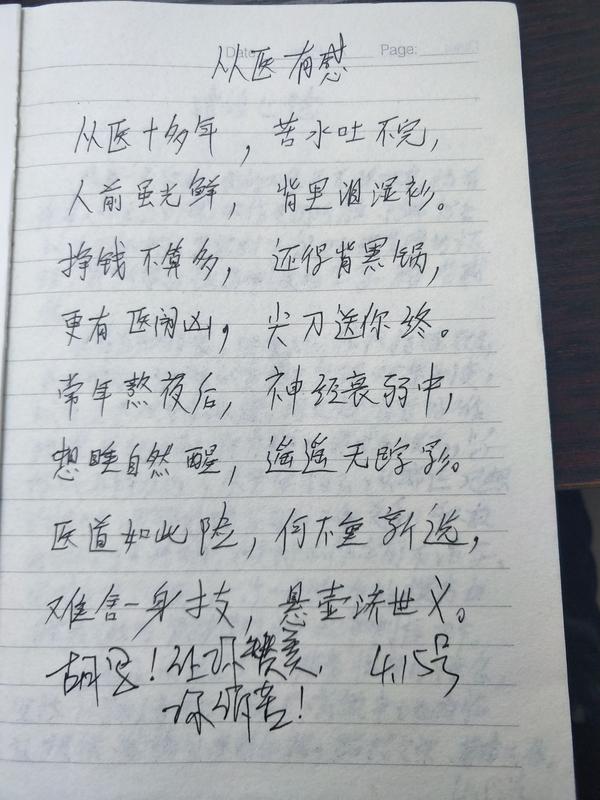 Date Page:
从医有慰
从医十多年，苦水吐不完，
人前虽光鲜，背里泪湿衫。
挣钱不算多，还得背黑锅，
更有医闹凶，尖刀送你终。
常年熬夜后，神经衰弱中，
想睡自然醒，遥遥无踪影。
医道如此险，何不重新选，
难舍一身技，悬壶济世义。
让你 4.15号
你